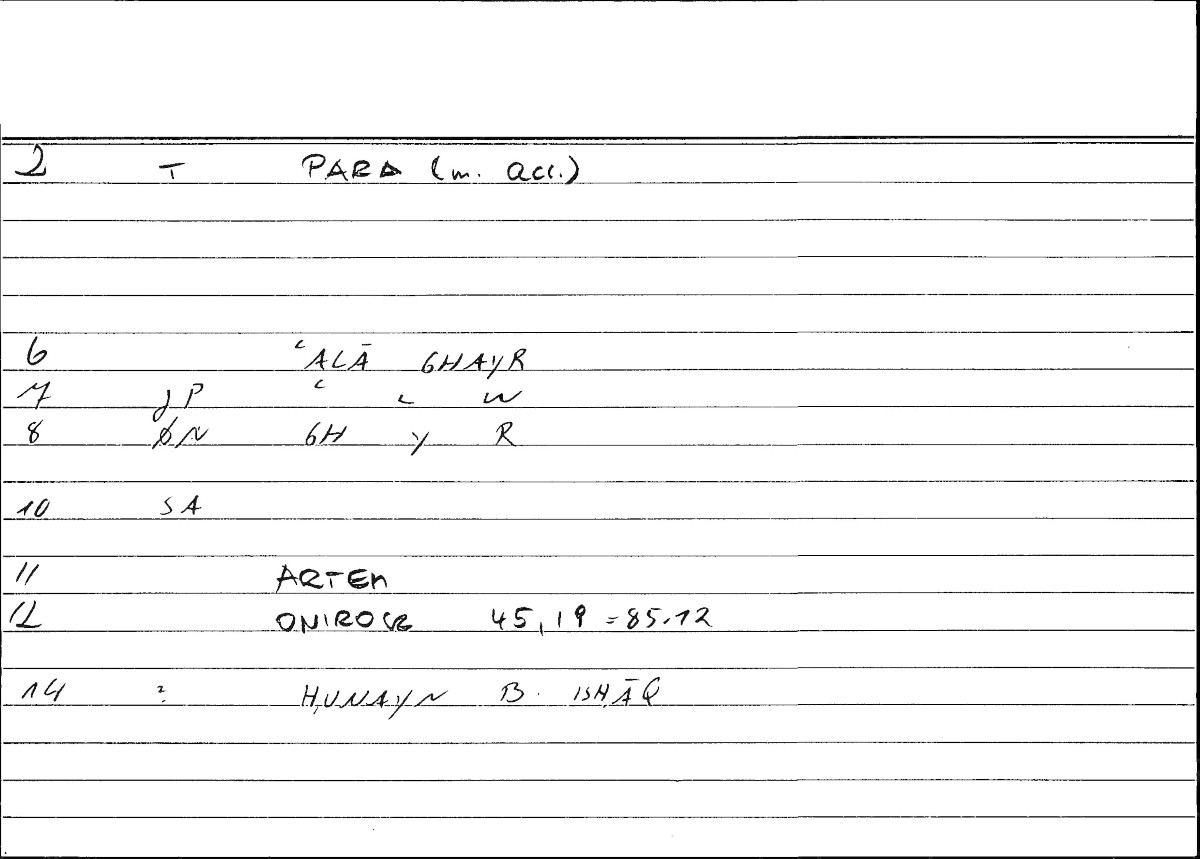 2 T PARA (m. acc.)
6 ʿALĀ GHAYR
7 JP ʿ L W
8 ØN GH Y R
10 SA
11 ARTEM
12 ONIROCR 45,19 = 85.12
14 ? ḤUNAYN B. ISḤĀQ